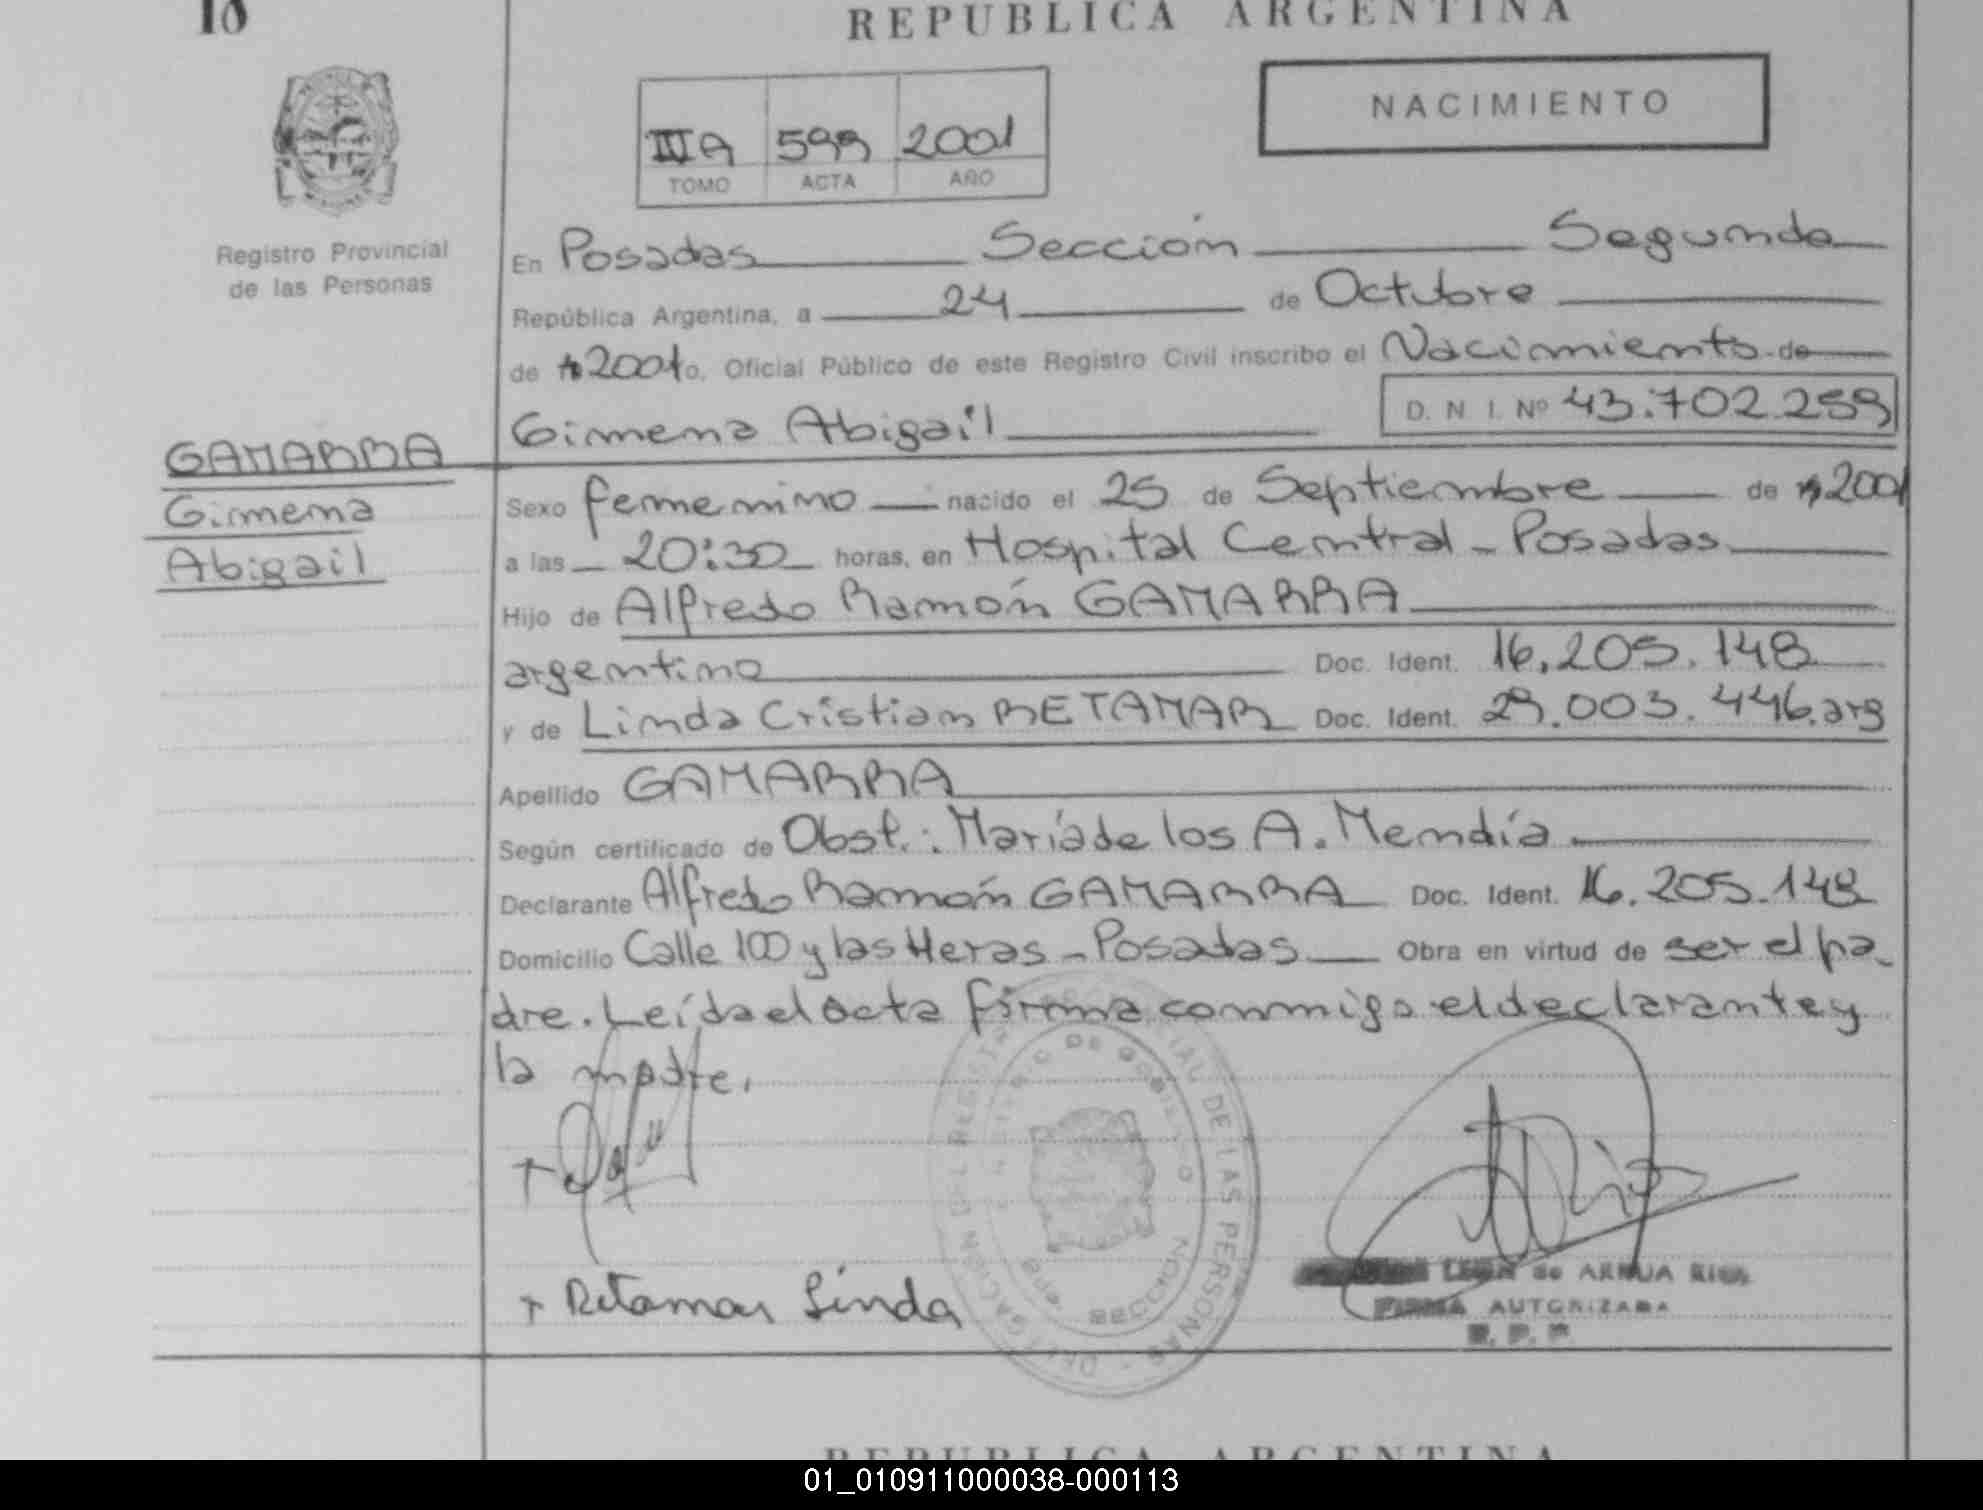 18
REPUBLICA ARGENTINA
NACIMIENTO
IIIA 599 2001
TOMO ACTA AÑO
Registro Provincial
de las Personas
En Posadas Sección Segunda
República Argentina, a 24 de Octubre
de 2001 yo, Oficial Público de este Registro Civil inscribo el Nacimiento de
Gimena Abigail D. N. I. Nº 43.702.259
GAMARRA
Gimena
Abigail
Sexo femenino nacido el 25 de Septiembre de 2001
a las 20:30 horas, en Hospital Central - Posadas
Hijo de Alfredo Ramón GAMARRA
argentino Doc. Ident. 16.205.148
y de Linda Cristian RETAMAR Doc. Ident. 29.003.446.arg
Apellido GAMARRA
Según certificado de Obst.: María de los A. Mendía
Declarante Alfredo Ramón GAMARRA Doc. Ident. 16.205.148
Domicilio Calle 100 y las Heras - Posadas Obra en virtud de ser el pa-
dre. Leída el acta firma conmigo el declarante y
la madre.
+ Retamar Linda
DELEGACION REGISTRO PROVINCIAL DE LAS PERSONAS
MINISTERIO DE GOBIERNO
SECCION
LEON de ARRUA
FIRMA AUTORIZADA
R. P. P.
REPUBLICA ARGENTINA
01_010911000038-000113